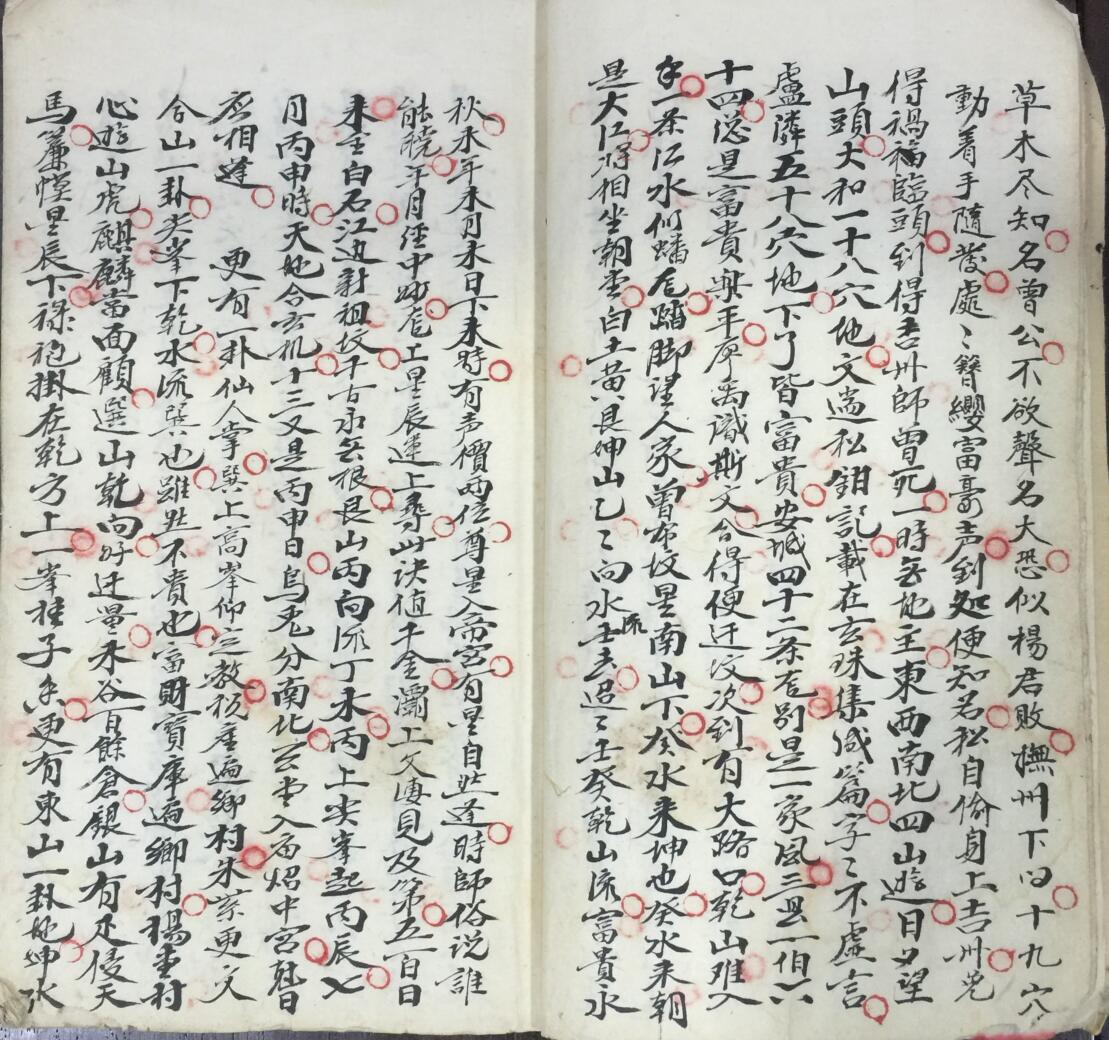 草木尽知名曾公不欲聲名大恐似楊君敗撫州下四十九穴
動着手隨發處々簪纓富豪声到处便知名松自偷身上吉州免
得禍福臨頭到得吉州師曾死一時無地主東西南北四山遊日夕望
山頭大和一十八穴地文遄松鉗記載在玄珠集咸篇字々不虛言
盧隣五十八穴地下了皆富貴安城四十二条龙別是一家風三县一伯六
十四㧾是富貴無平序禹識斯文合得便迁坟次到有大路口乾山难入
手一条江水何蟠龙踏脚理人家曾布坟星南山下癸水来坤也癸水来朝
是大江将相坐朝堂白土黄艮坤山乙々向水流去過々壬癸乾山流富貴永
秋未年未月未日下未時有声價两位尊星入命宮有星自然逢時師俗说誰
能曉年月经中妙龙工星辰運上尋此诀值千金灞上父凄見及第五一百日
来壬白石江边對祖坟千古永無根艮山丙向流丁未丙上尖峯起丙辰七
月丙申時天地合玄机十三又是丙申日烏兎分南北公堂入庙招中宮魁日
应相逢　更有一卦仙人掌巽上高峯仰三教税産遍鄉村朱紫更文
合山一卦尖峯下乾水流巽也雖些不貴也富財寶庫遍鄉村楊堂村
心遊山虎麒麟當面顧選山乾向好迁量禾谷百餘倉銀山有足倰天
馬簾幙星辰下禄袍掛在乾方上一峯桂子香更有東山一卦地坤水